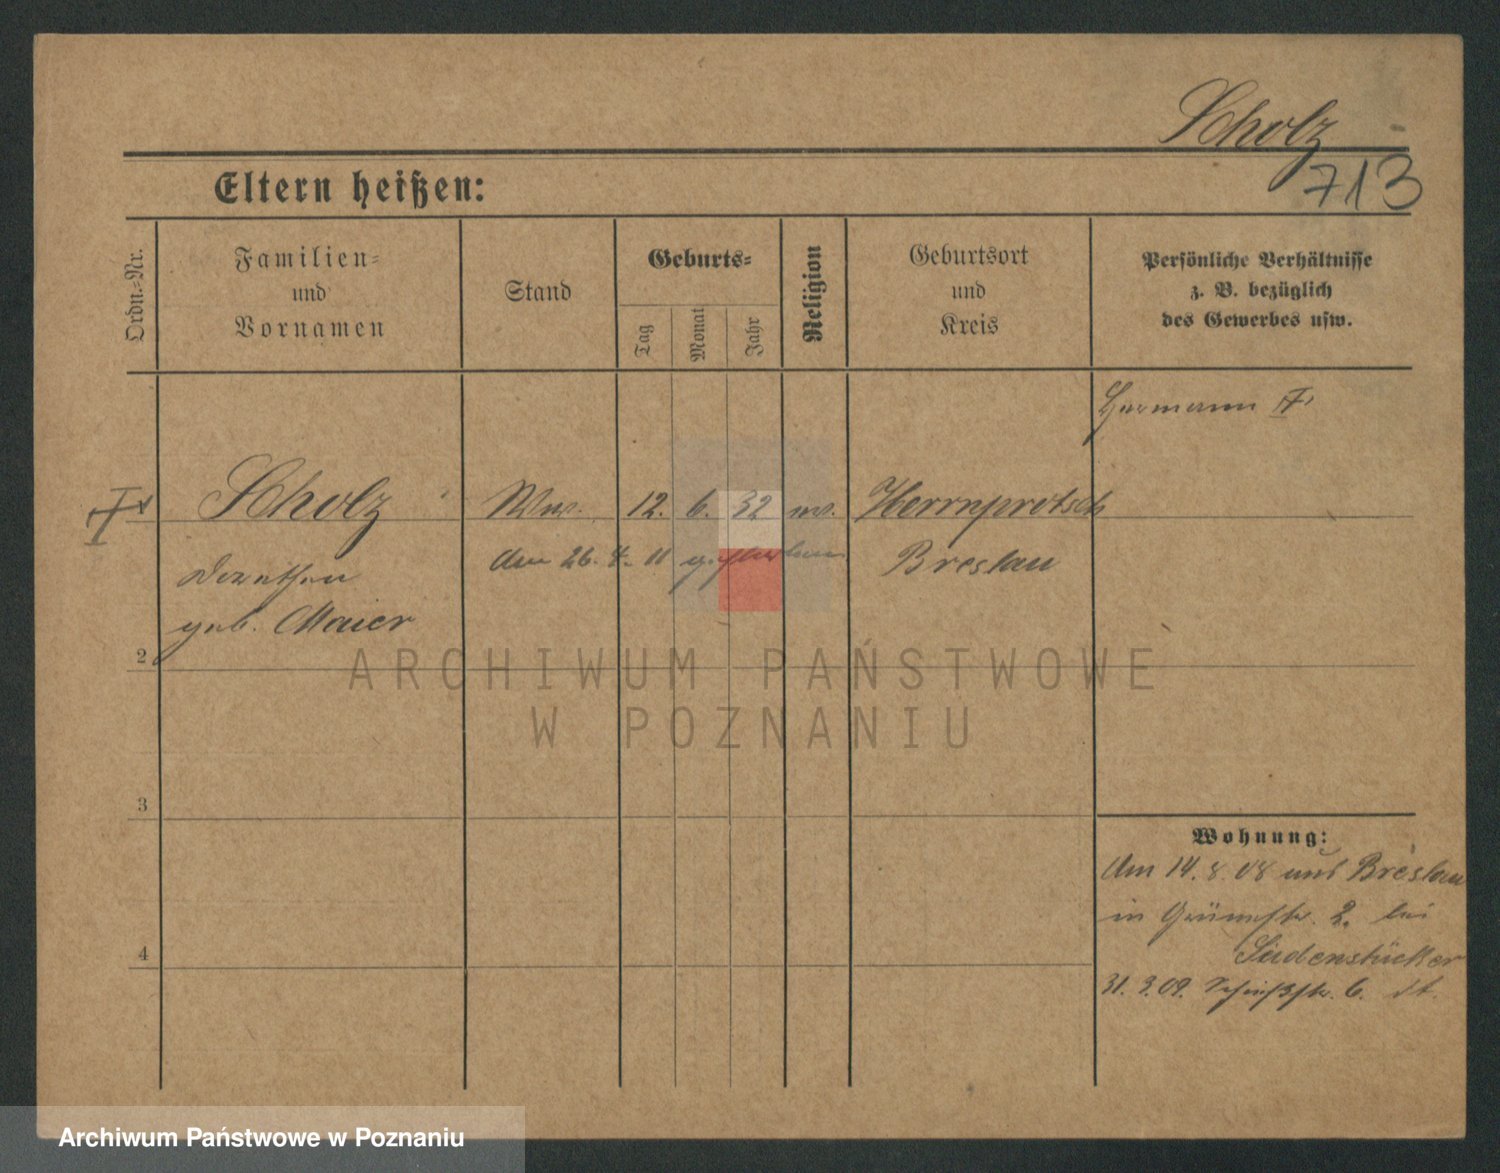 Scholz
713
Eltern heißen:
Ordn.-Nr.
Familien- und Vornamen
Stand
Geburts-
Tag
Monat
Jahr
Religion
Geburtsort und Kreis
Persönliche Verhältnisse z. B. bezüglich des Gewerbes usw.
Hermann
Scholz
Ww.
12. 6. 32
Herrnprotsch
am 26. 8. 11 gestorben
Breslau
Dorothea
geb. Maier
2
3
4
Wohnung:
Am 14. 8. 08 aus Breslau
in 2. bei
Südenstücker
31. 3. 09. Schießstr. 6.
ARCHIWUM PAŃSTWOWE
W POZNANIU
Archiwum Państwowe w Poznaniu